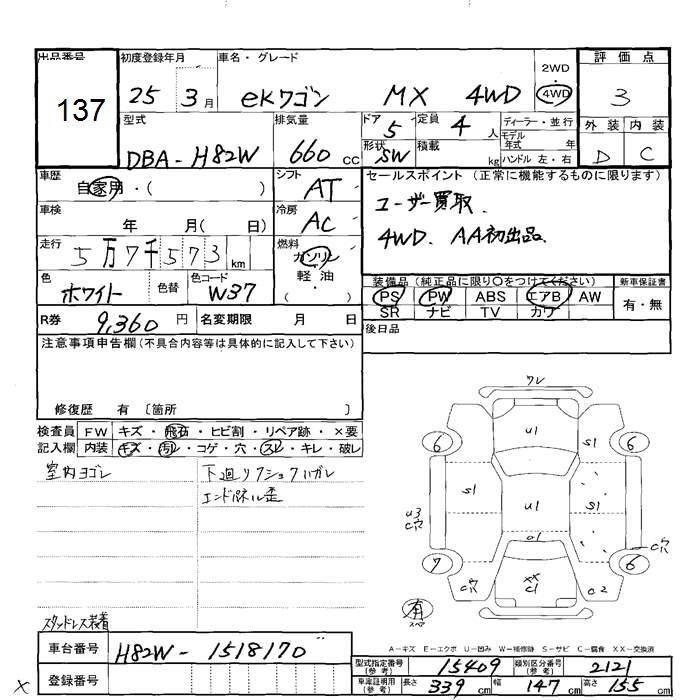 出品番号 初度登録年月 車名・グレード 2WD・4WD 評価点
137 25 3月 eKワゴン MX 4WD 3
型式 排気量 ドア 5 定員 4人 ディーラー・並行 外装 内装
DBA-H82W 660cc 形状 SW 積載 kg モデル年式 年 D C
ハンドル 左・右
車歴 自家用・( ) シフト AT セールスポイント (正常に機能するものに限ります)
車検 年 月( 日) 冷房 AC ユーザー買取、
走行 5万7千573km 燃料 ガソリン・軽油・( ) 4WD、AA初出品、
色 ホワイト 色替 色コード W37 装備品 (純正品に限り○をつけてください) 新車保証書
PS PW ABS エアB AW 有・無
SR ナビ TV カワ
R券 9,360円 名変期限 月 日 後日品
注意事項申告欄(不具合内容等は具体的に記入して下さい)
修復歴 有 〔箇所 〕
検査員 FW キズ・飛石・ヒビ割・リペア跡・×要
記入欄 内装 キズ・汚レ・コゲ・穴・スレ・キレ・破レ
室内ヨゴレ 下廻リフシュクハガレ
エンドパネル歪
ワレ
U1 S1
6 6
S1 U1 S1
U3
C穴 C穴
7 6
C穴 XX C1 C2
有 スペア
スタッドレス装着
A-キズ E-エクボ U-凹み W-補修跡 S-サビ C-腐食 XX-交換済
車台番号 H82W-1518170
型式指定番号(参考) 15409 類別区分番号(参考) 2121
登録番号 車庫証明用(参考) 長さ 339cm 幅 147cm 高さ 155cm
X